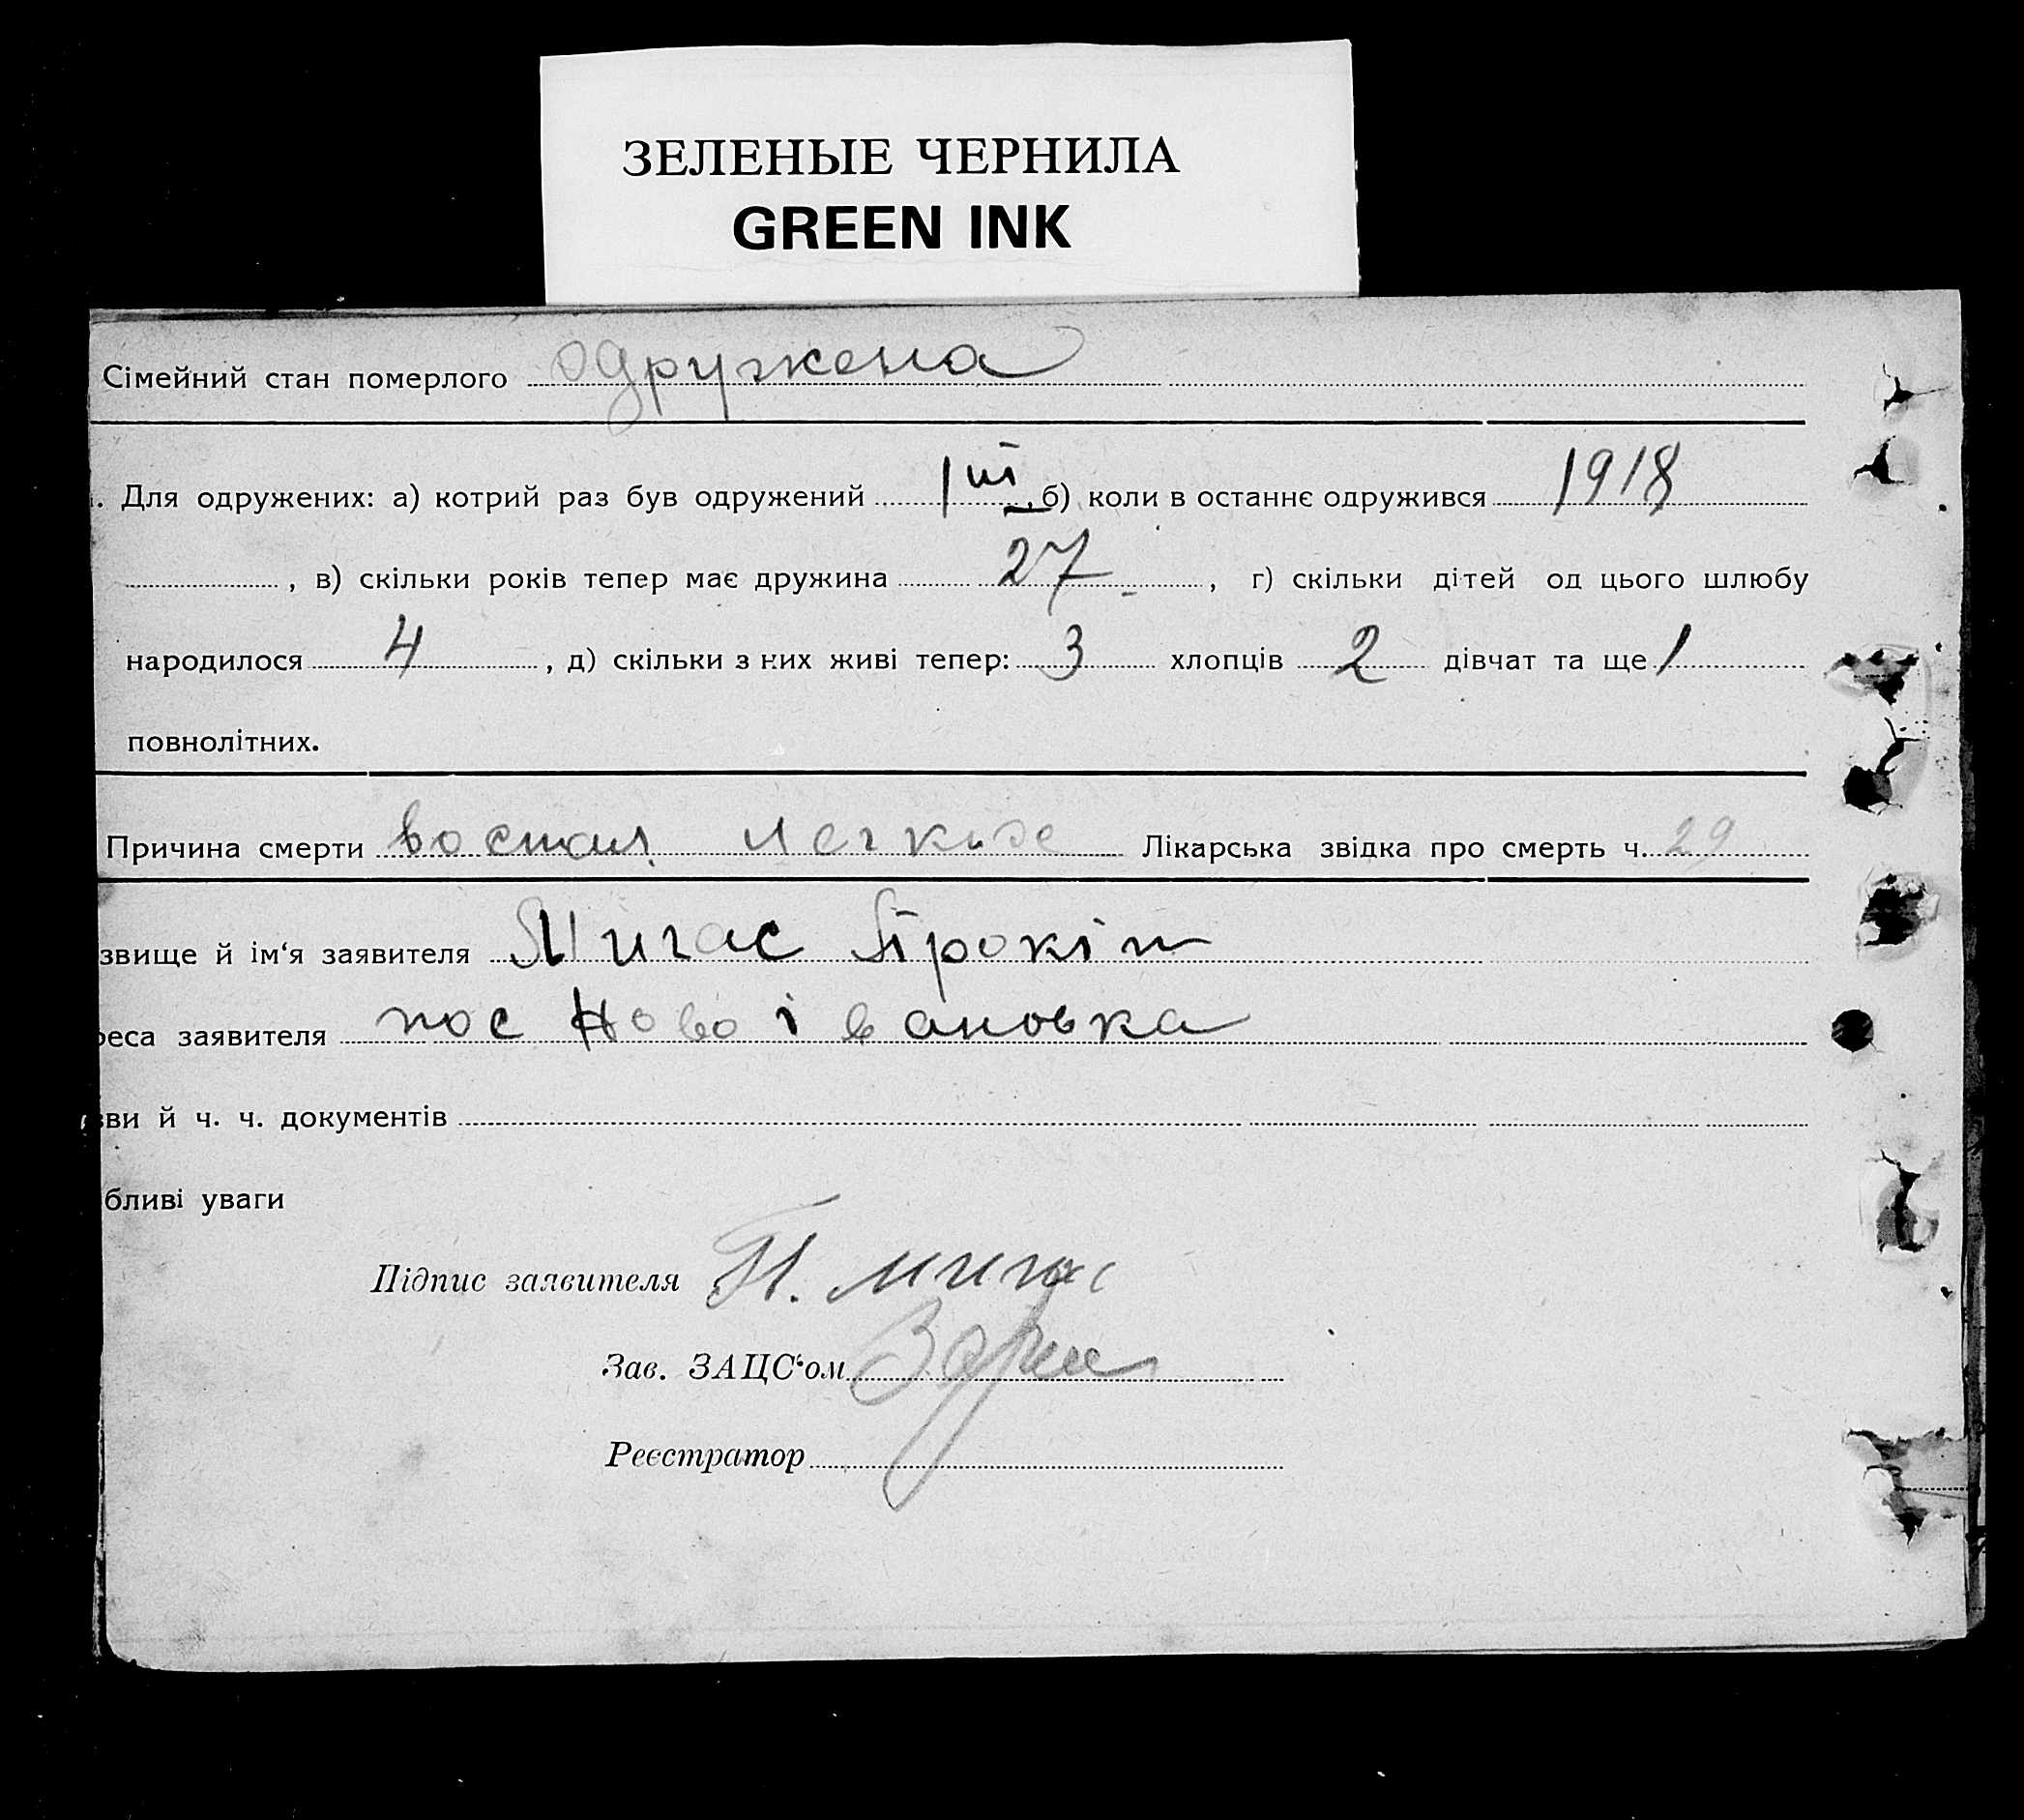 ЗЕЛЕНЫЕ ЧЕРНИЛА
GREEN INK
Сімейний стан померлого одружена
. Для одружених: а) котрий раз був одружений 1ш, б) коли в останнє одружився 1918
, в) скільки років тепер має дружина 27, г) скільки дітей од цього шлюбу
народилося 4, д) скільки з них живі тепер: 3 хлопців 2 дівчат та ще 1
повнолітних.
Причина смерти воспал легких Лікарська звідка про смерть ч. 29
звище й ім‘я заявителя Мигас Прокіп
реса заявителя пос Ново івановка
зви й ч. ч. документів
бливі уваги
Підпис заявителя П. Мигас
Зав. ЗАЦС‘ом
Реєстратор